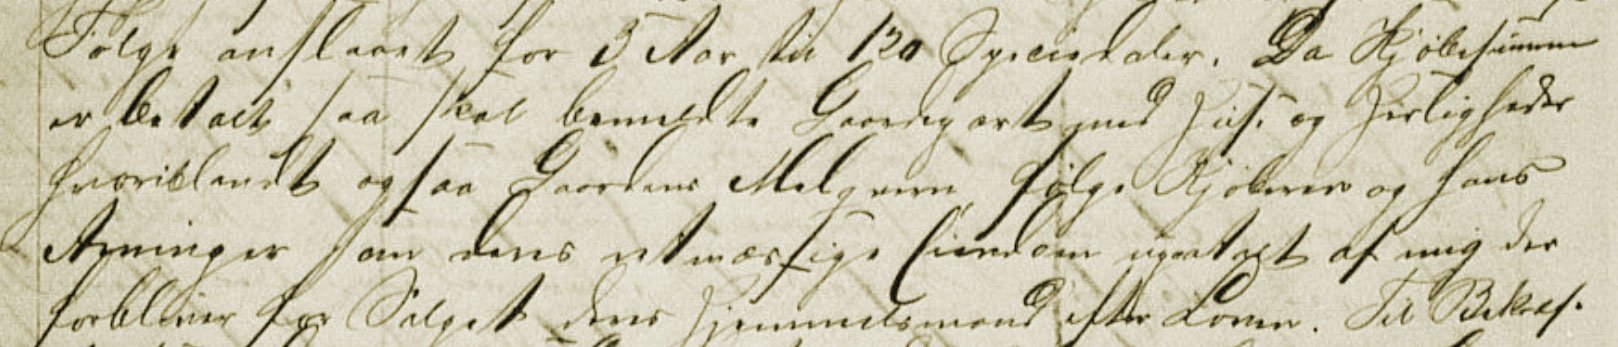 Følge anslaaet for 5 Aar til 120 Speciedaler. Da Kjøbesummen
er betalt saa skal bemeldte Gaardepart med Huse og Herligheder
hvoriblandt ogsaa Gaardens Melqvern følge Kjøberen og hans
Arvinger som deres retmæssige Eiendom upaatalt af mig der
forbliver for Salget deres Hjemmelsmand efter Loven. Til Bekræf-